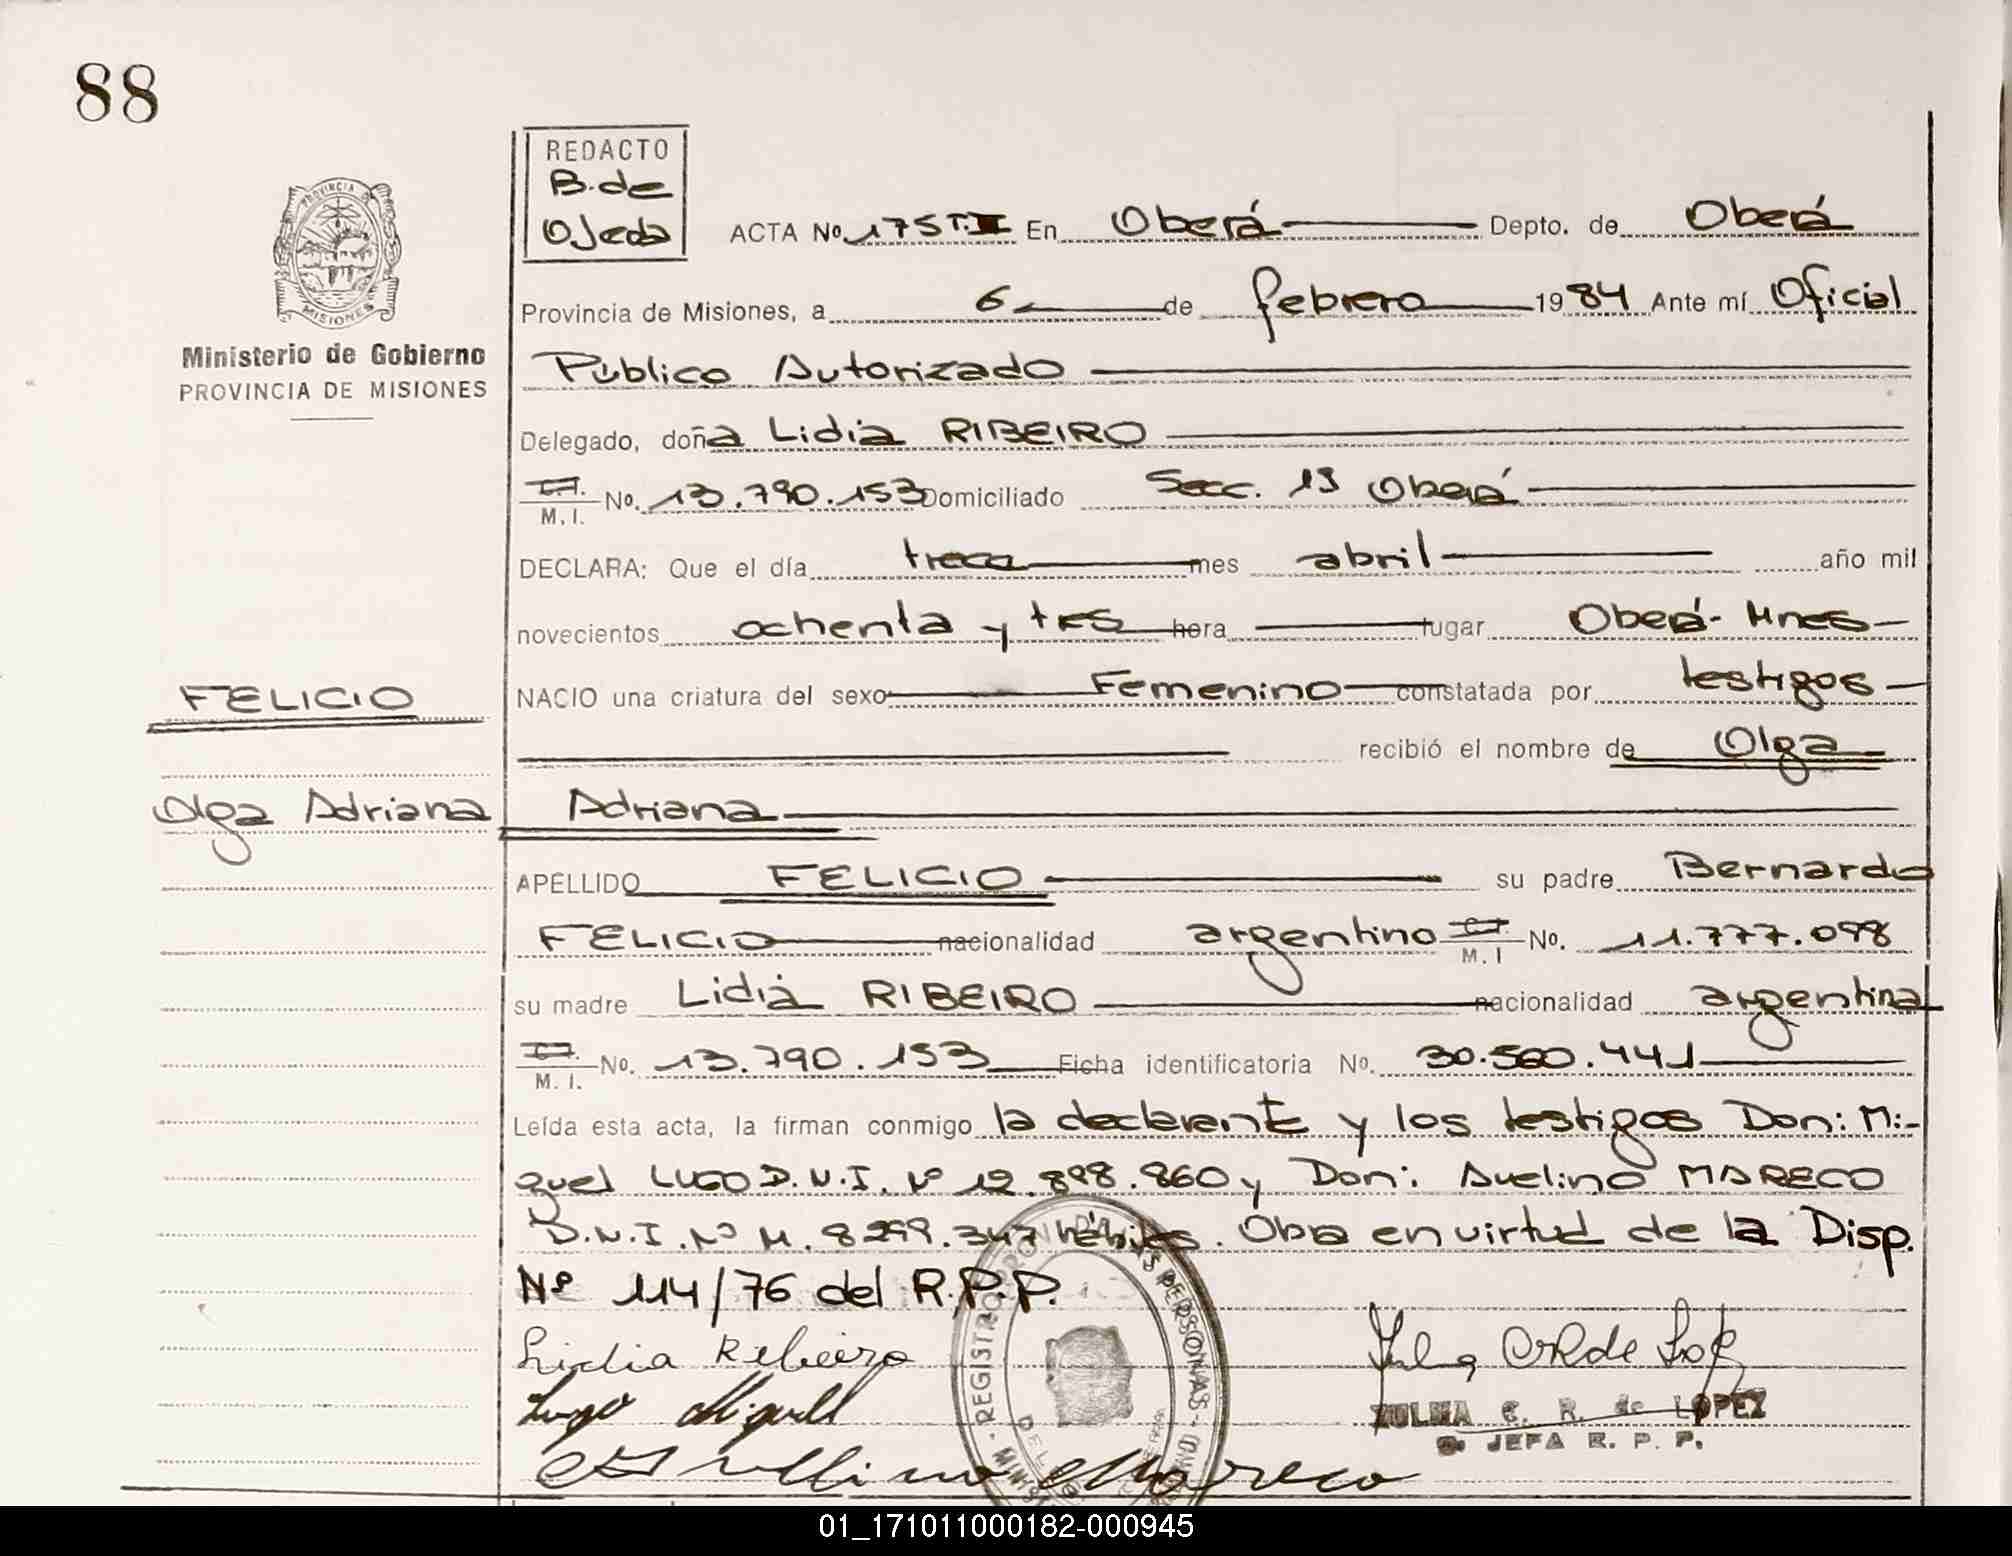 88
REDACTO
B. de
Ojeda
ACTA No. 175 T. II En Oberá Depto. de Oberá
Provincia de Misiones, a 6 de febrero 1984 Ante mí Oficial
Ministerio de Gobierno
PROVINCIA DE MISIONES
Público Autorizado
Delegado, doña Lidia RIBEIRO
M. I. No. 13.790.153 Domiciliado Secc. 13 Oberá
DECLARA: Que el día trece mes abril año mil
novecientos ochenta y tres hora lugar Oberá- Mnes
FELICIO
NACIO una criatura del sexo Femenino constatada por testigos
recibió el nombre de Olga
Olga Adriana
Adriana
APELLIDO FELICIO su padre Bernardo
FELICIO nacionalidad argentino C.I. M. I No. 11.777.098
su madre Lidia RIBEIRO nacionalidad argentina
C.I. M. I. No. 13.790.153 Ficha identificatoria No. 30.560.441
Leída esta acta, la firman conmigo la declarante y los testigos Don: Mi-
guel LUGO D.N.I. Nº 12.898.860 y Don: Avelino MARECO
D.N.I. Nº M. 8.299.347 hábiles. Obra en virtud de la Disp.
Nº 114/76 del R.P.P.
Lidia Ribeiro
Lugo Miguel
Avellino Mareco
ZULMA C. R. de LOPEZ
JEFA R. P. P.
01_171011000182-000945